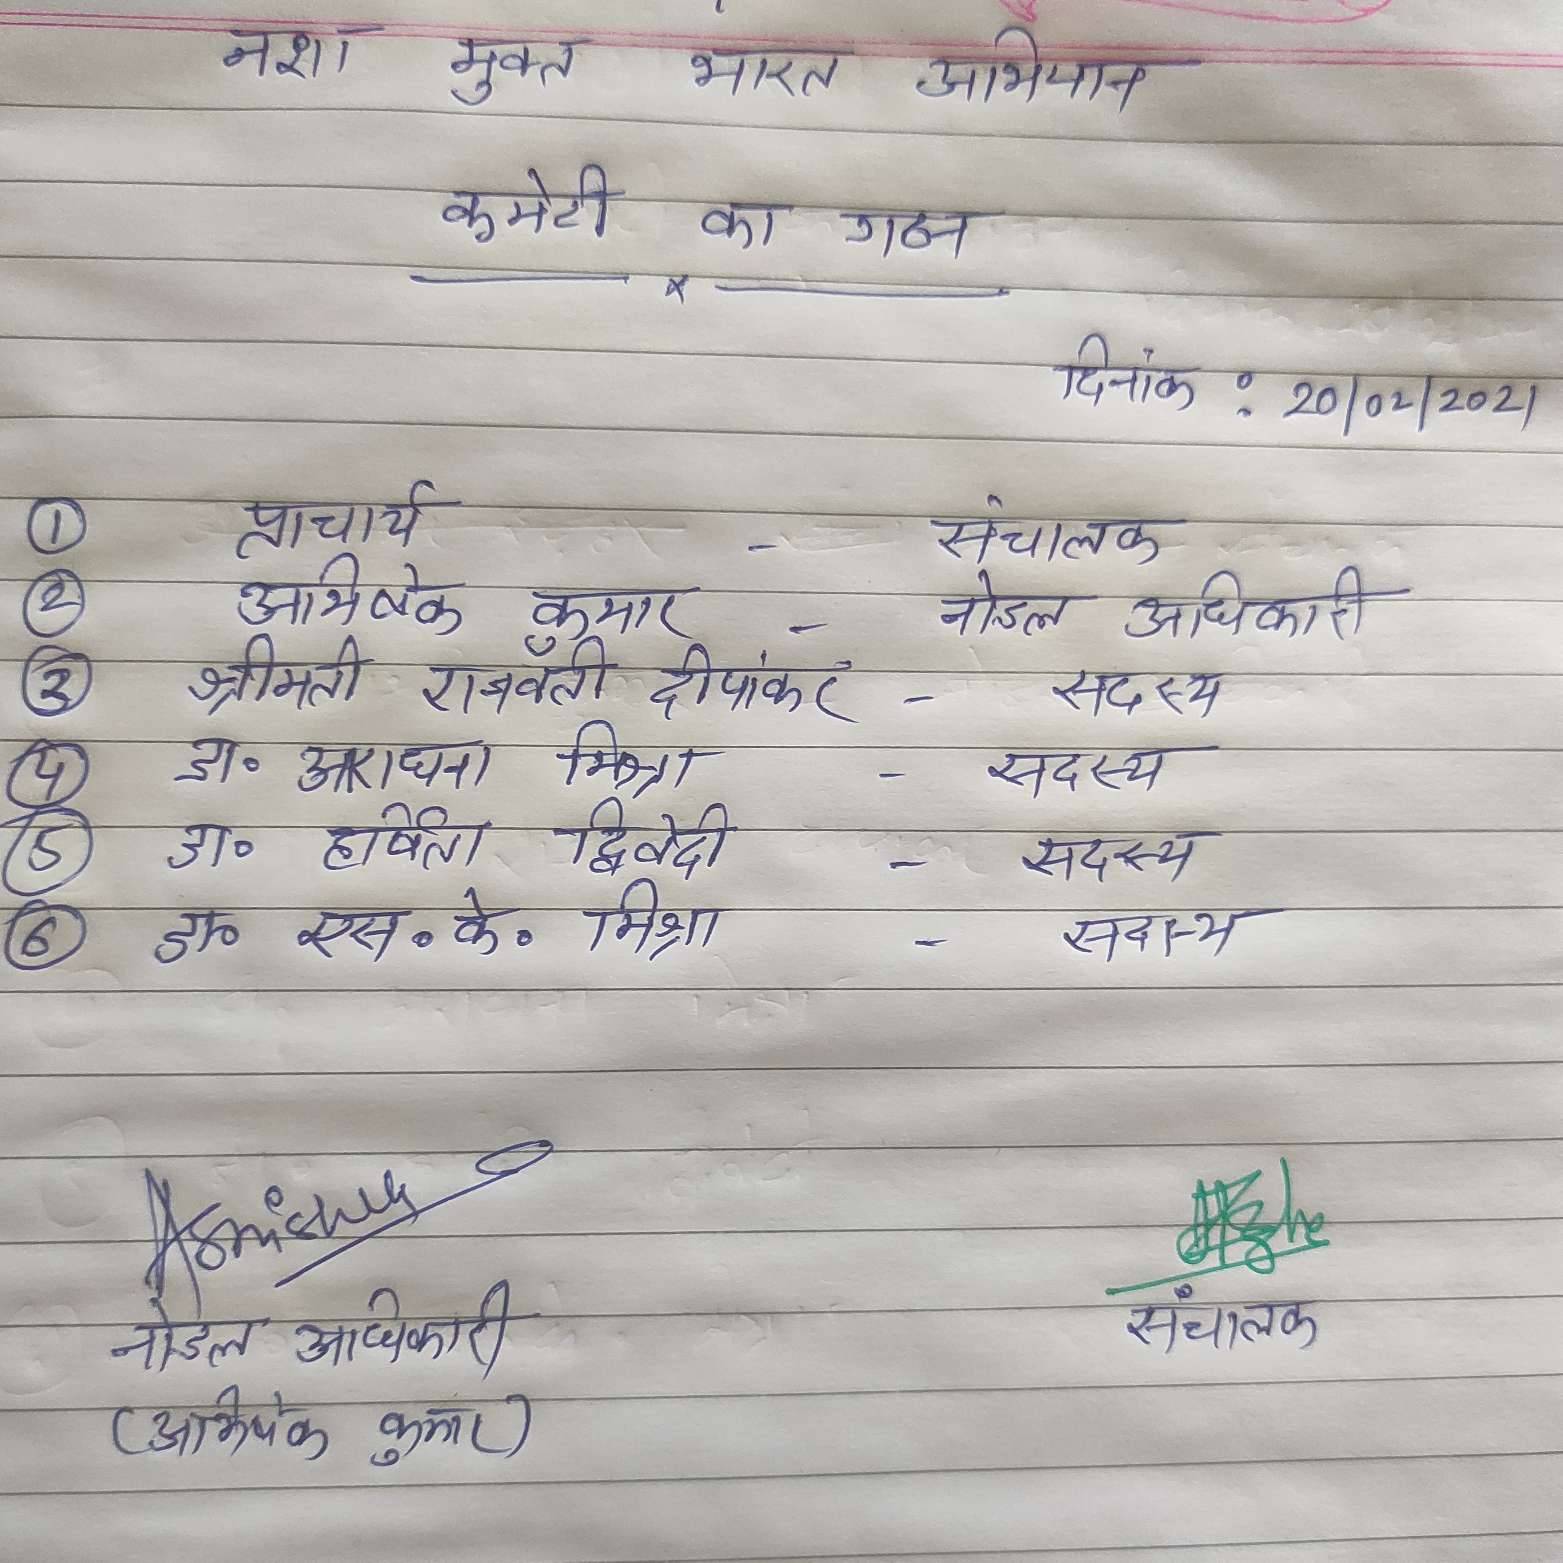 नशा मुक्त भारत अभियान
कमेटी का गठन
x
दिनांक : 20/02/2021
① प्राचार्य - संचालक
② अभिषेक कुमार - नोडल अधिकारी
③ श्रीमती राजवंती दीपांकर - सदस्य
④ डा॰ अराधना मिश्रा - सदस्य
⑤ डा॰ हर्षिता द्विवेदी - सदस्य
⑥ डा॰ एस॰ के॰ मिश्रा - सदस्य
नोडल अधिकारी
संचालक
(अभिषेक कुमार)